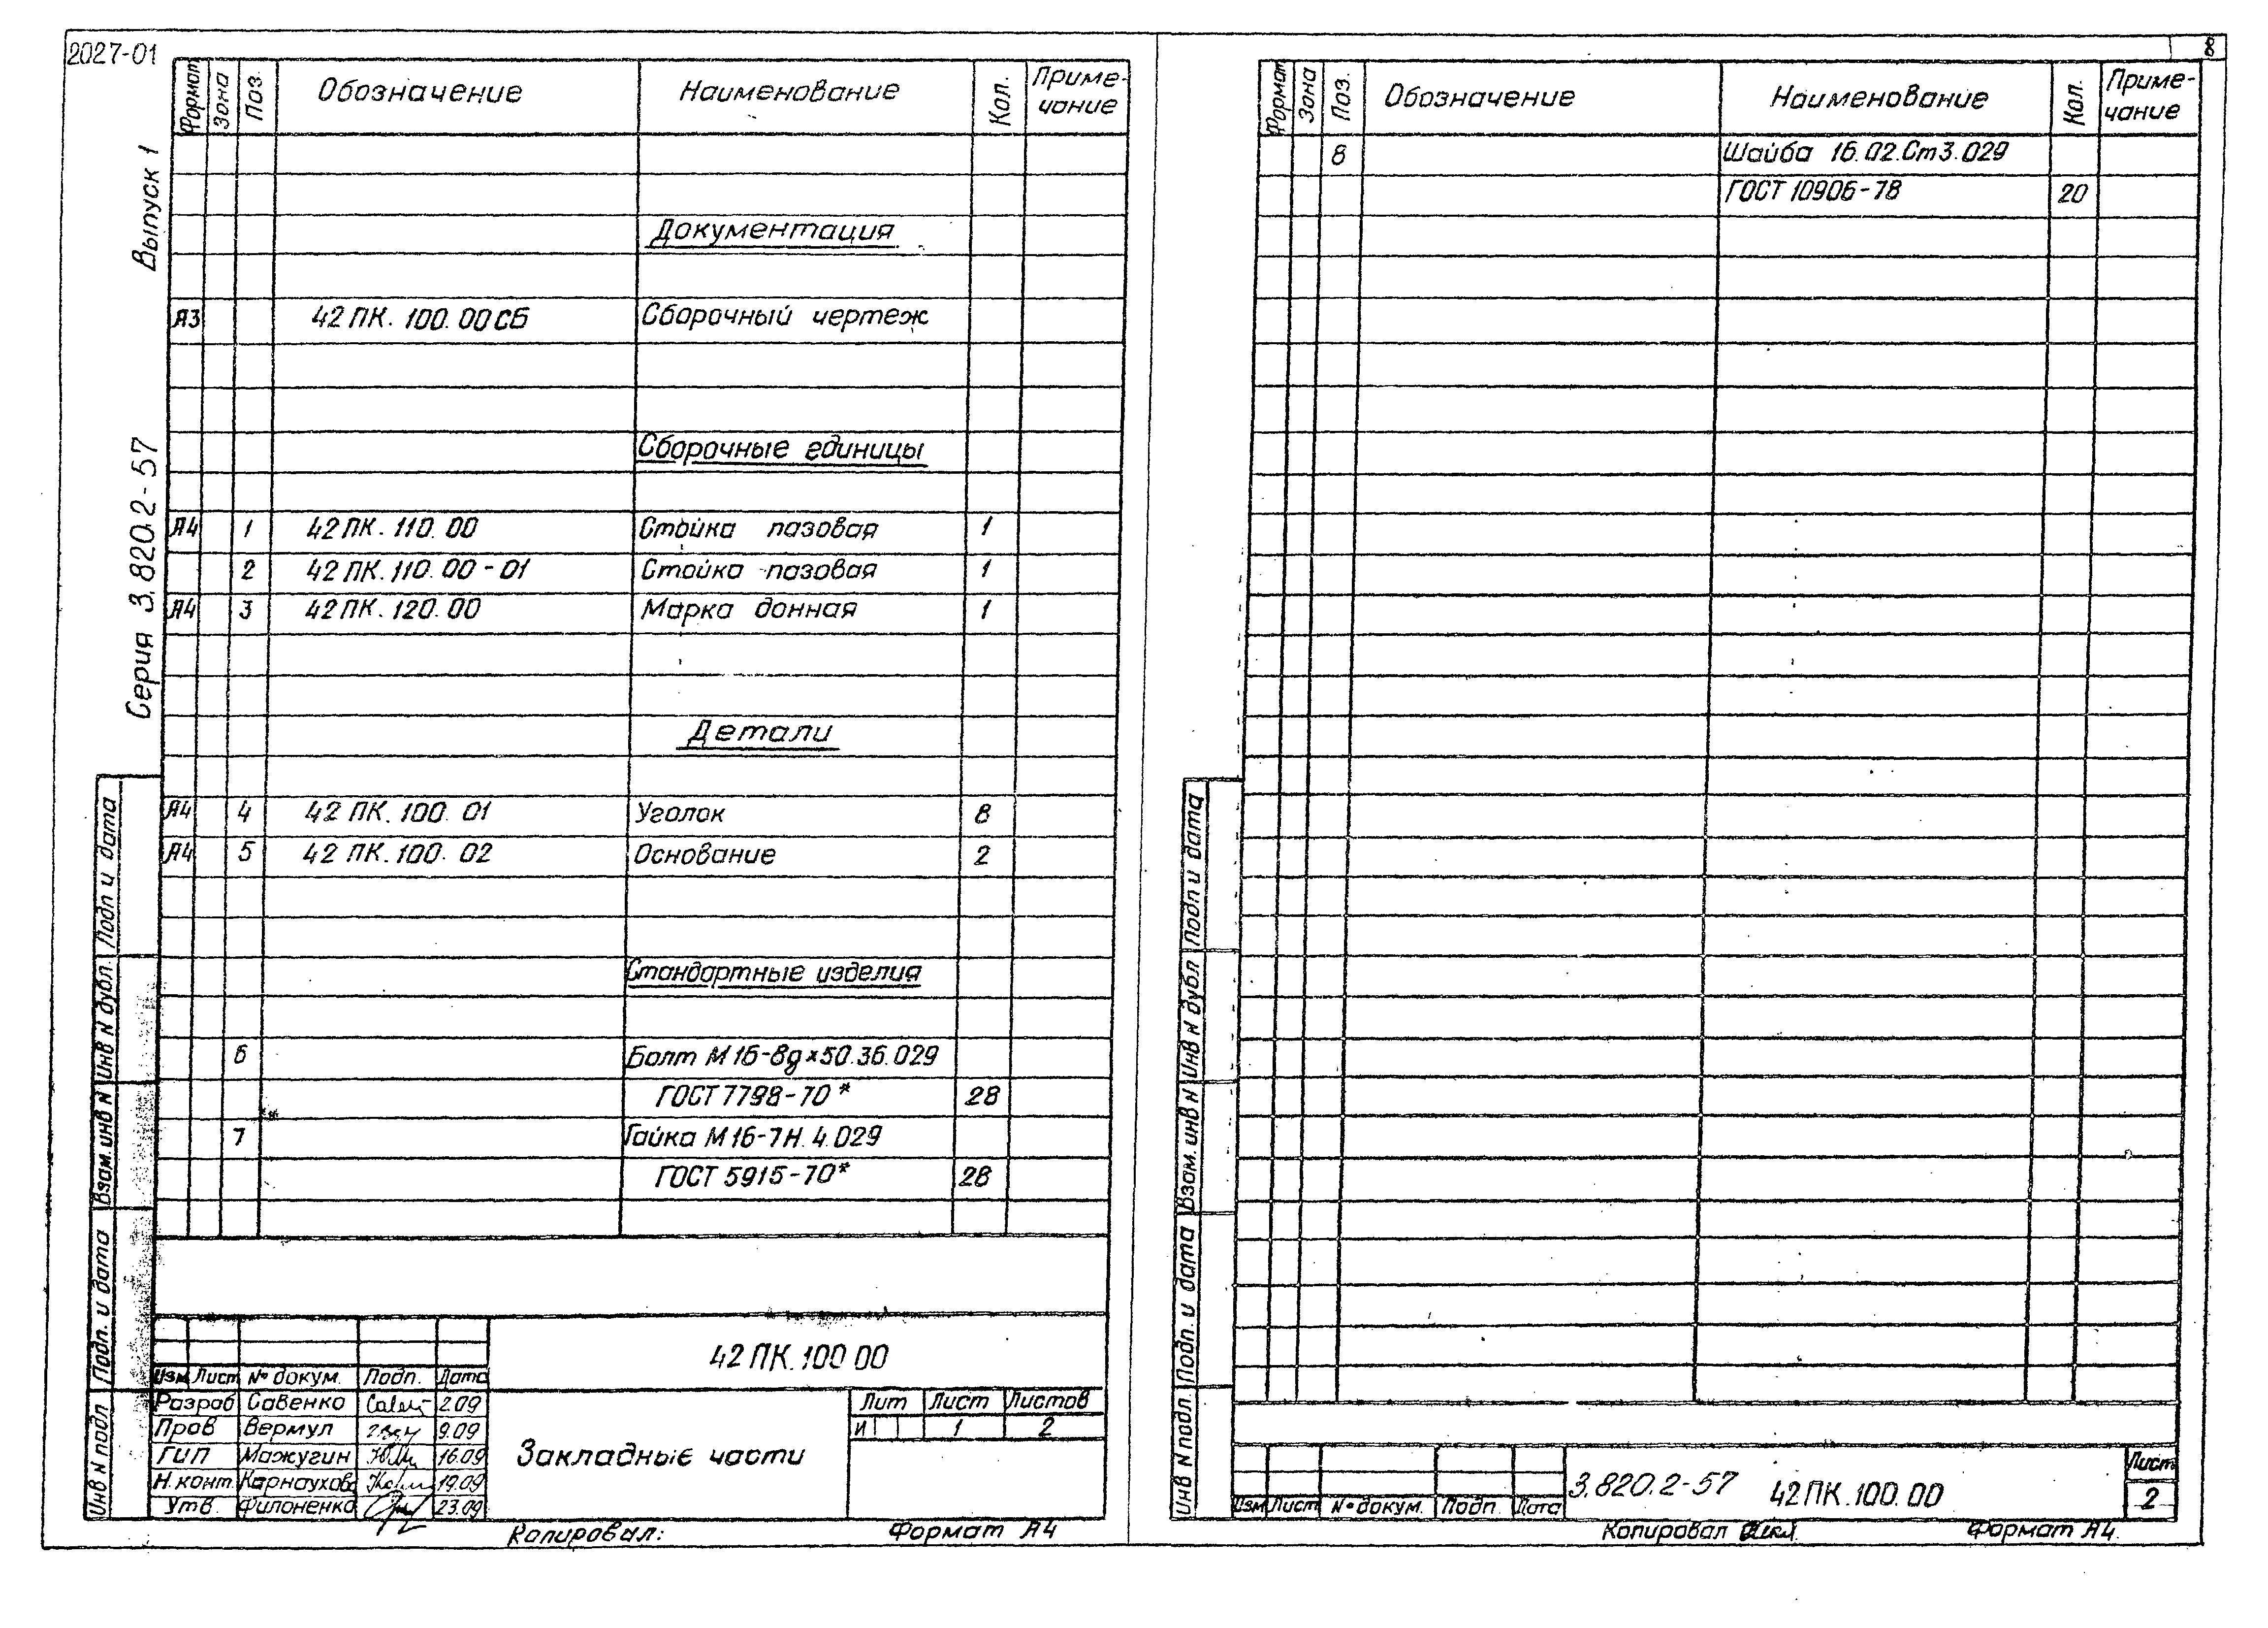 2027-01
8
Выпуск 1
Серия 3.820.2-57
Формат Зона Поз. Обозначение Наименование Кол. Приме-
чание
Документация
А3 42 ПК. 100. 00 СБ Сборочный чертеж
Сборочные единицы
А4 1 42 ПК. 110. 00 Стойка пазовая 1
2 42 ПК. 110. 00 - 01 Стойка пазовая 1
А4 3 42 ПК. 120. 00 Марка донная 1
Детали
А4 4 42 ПК. 100. 01 Уголок 8
А4 5 42 ПК. 100. 02 Основание 2
Стандартные изделия
6 Болт М16-8gx50.36.029
ГОСТ 7798-70* 28
7 Гайка М16-7Н.4.029
ГОСТ 5915-70* 28
42 ПК. 100 00
Изм Лист № докум. Подп. Дата
Разраб Савенко 2.09
Пров Вермул 9.09
ГИП Мажугин 16.09
Н.конт. Карнаухова 19.09
Утв. Филоненко 23.09
Закладные части
Лит Лист Листов
И 1 2
Копировал:
Формат А4
Подп и дата
Инв N дубл.
Взам. инв N
Подп. и дата
Инв N подл
Формат Зона Поз. Обозначение Наименование Кол. Приме-
чание
8 Шайба 16.02.Ст3.029
ГОСТ 10906-78 20
Подп и дата
Инв N дубл
Взам. инв N
Подп. и дата
Инв N подл.
Изм Лист № докум. Подп. Дата
3.820.2-57 42 ПК. 100. 00
Лист
2
Копировал
Формат А4.